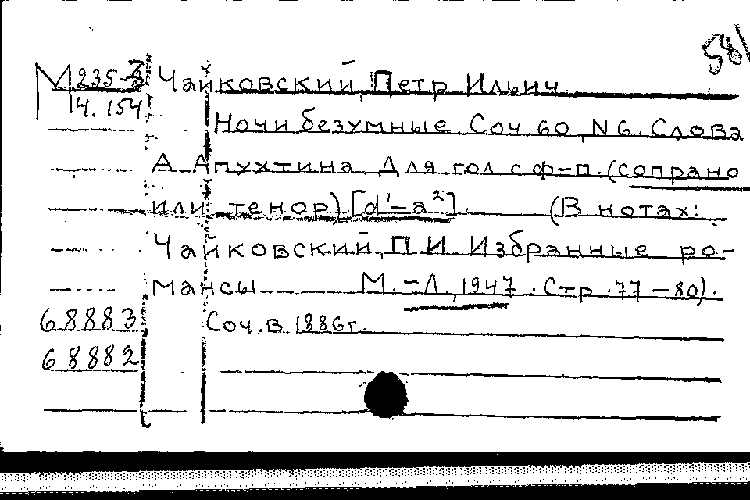 581
М 235-3 Чайковский, Петр Ильич
14.154
Ночи безумные. Соч 60, N 6. Слова
А Апухтина Для гол с ф-п. (сопрано
или тенор) [d¹-a²]. (В нотах:
Чайковский, П. И. Избранные ро-
мансы М.-Л, 1947. Стр. 77-80).
68883 Соч. в 1886г.
68882